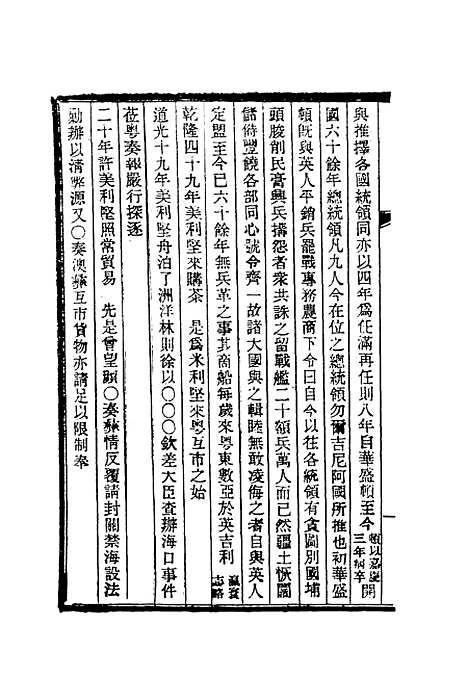 與推擇各國統領同亦以四年爲任滿再任則八年自華盛頓至今頓以嘉慶三年病卒開
國六十餘年總統領凡九人今在位之總統領勿爾吉尼阿國所推也初華盛
頓旣與英人平銷兵罷戰專務農商下令曰自今以往各統領有貪圖別國埔
頭朘削民膏興兵搆怨者衆共誅之留戰艦二十額兵萬人而已然疆土恢闊
儲偫豐饒各部同心號令齊一故諸大國與之輯睦無敢凌侮之者自與英人
定盟至今已六十餘年無兵革之事其商船每歲來粤東數亞於英吉利瀛寰志略
乾隆四十九年美利堅來購茶 是爲米利堅來粤互市之始
道光十九年美利堅舟泊了洲洋林則徐以〇〇〇欽差大臣查辦海口事件
莅粤奏報嚴行探逐
二十年許美利堅照常貿易 先是曾望顏〇奏夷情反覆請封關禁海設法
勦辦以淸弊源又〇奏澳夷互市貨物亦請足以限制奉